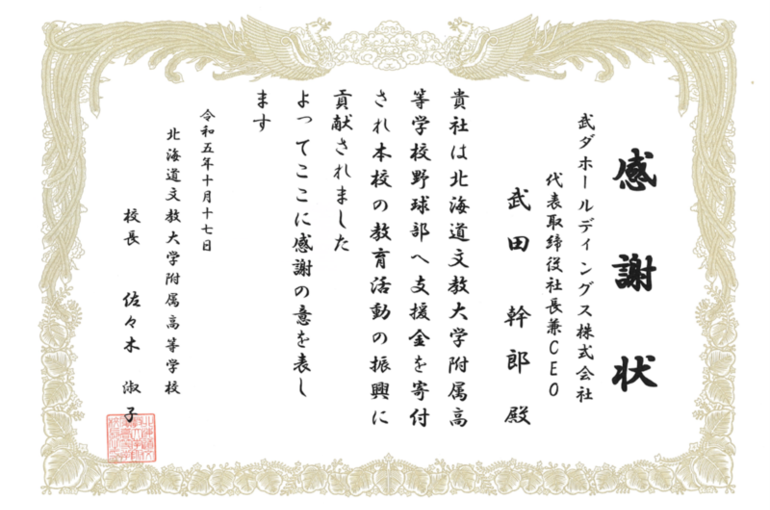 感謝状
武ダホールディングス株式会社
代表取締役社長兼CEO
武田幹郎殿
貴社は北海道文教大学附属高
等学校野球部へ支援金を寄付
され本校の教育活動の振興に
貢献されました
よってここに感謝の意を表し
ます
令和五年十月十七日
北海道文教大学附属高等学校
校長 佐々木 淑子